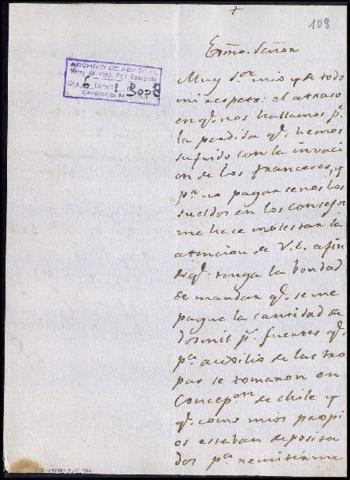 +
108
Exmo. Señor
ARCHIVO DE ABASCAL
Muy Sor. mio y de todo
mi respeto: el atraso
en qe. nos hallamos pr.
la perdida qe. hemos
sufrido con la invaci
on de los franceses, y
pr. no pagarsenos los
sueldos en los consejos
me hace molestar la
atencion de V.E. afin
de qe. tenga la bondad
de mandar qe. se me
pague la cantidad de
dosmil ps. fuertes qe.
pa. auxilio de las tro
pas se tomaron en
Concepon. de chile y
qe. como mios propi
os estaban deposita
dos pa. remitirme